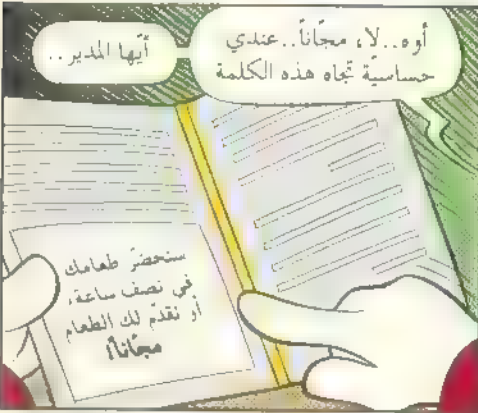 أوه..لا، مجّاناً..عندي
حساسيّة تجاه هذه الكلمة
أيّها المدير..
سنحضّر طعامك
في نصف ساعة،
أو نقدّم لك الطعام
مجّاناً!